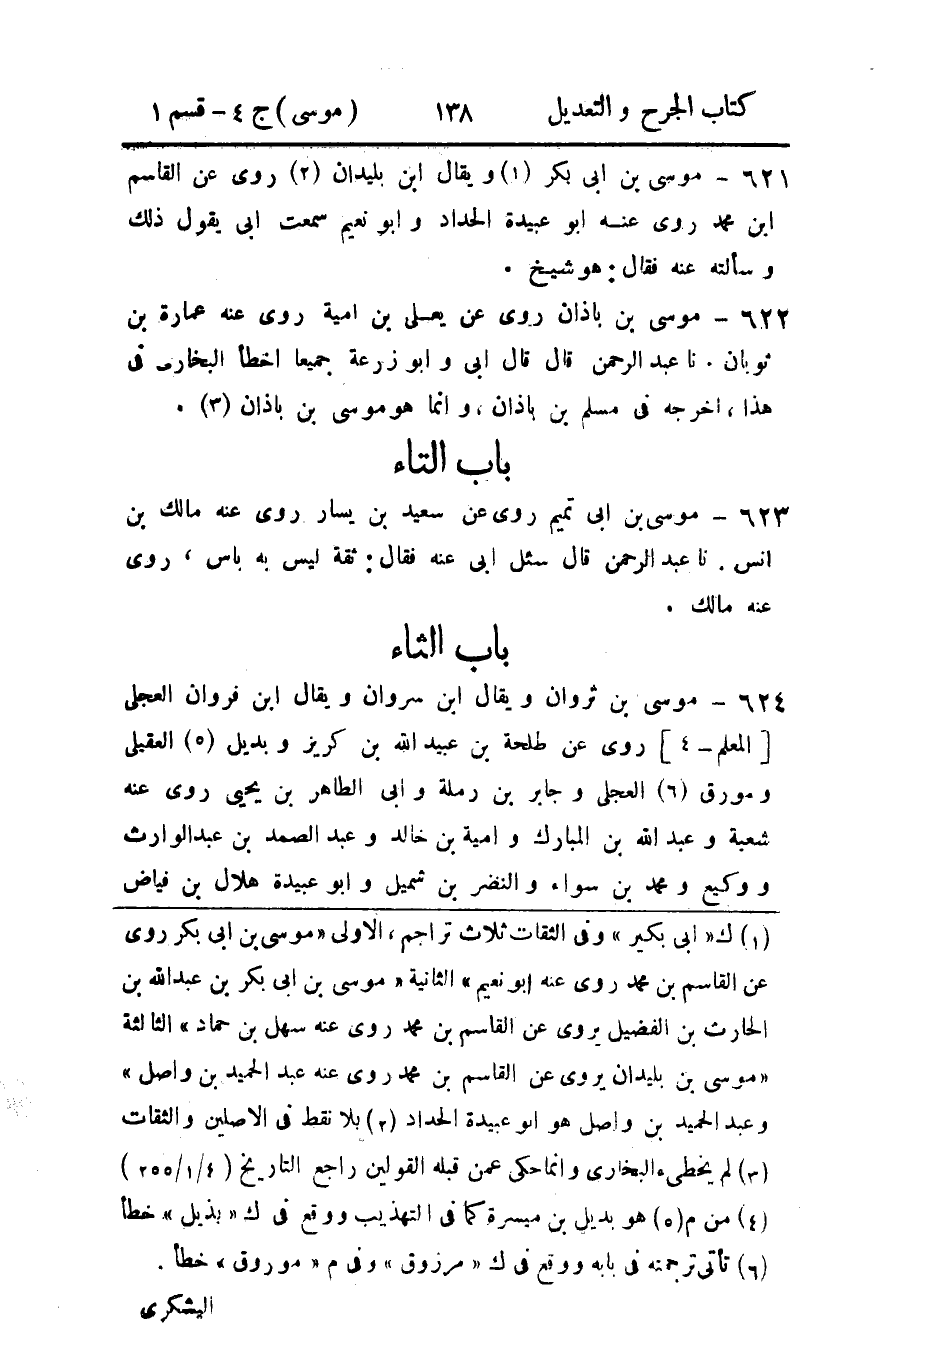 كتاب الجرح والتعديل ١٣٨ (موسى) ج ٤ - قسم ١
٦٢١ - موسى بن ابى بكر (١) ويقال ابن بليدان (٢) روى عن القاسم
ابن محمد روى عنه ابو عبيدة الحداد و ابو نعيم سمعت ابى يقول ذلك
و سألته عنه فقال: هو شيخ .
٦٢٢ - موسى بن باذان روى عن يعلى بن امية روى عنه عمارة بن
ثوبان . نا عبد الرحمن قال قال ابى و ابو زرعة جميعا اخطأ البخارى فى
هذا ، اخرجه فى مسلم بن باذان ، و انما هو موسى بن باذان (٣) .
باب التاء
٦٢٣ - موسى بن ابى تميم روى عن سعيد بن يسار روى عنه مالك بن
انس . نا عبد الرحمن قال سئل ابى عنه فقال: ثقة ليس به باس ، روى
عنه مالك .
باب الثاء
٦٢٤ - موسى بن ثروان و يقال ابن سروان و يقال ابن فروان العجلى
[ المعلم - ٤ ] روى عن طلحة بن عبيد الله بن كريز و بديل (٥) العقيلى
و مورق (٦) العجلى و جابر بن رملة و ابى الطاهر بن يحيى روى عنه
شعبة و عبد الله بن المبارك و امية بن خالد و عبد الصمد بن عبد الوارث
و وكيع و محمد بن سواء و النضر بن شميل و ابو عبيدة هلال بن فياض
(١) ك « ابى بكير » وفى الثقات ثلاث تراجم ، الاولى « موسى بن ابى بكر روى
عن القاسم بن محمد روى عنه ابو نعيم » الثانية « موسى بن ابى بكر بن عبد الله بن
الحارث بن الفضيل يروى عن القاسم بن محمد روى عنه سهل بن حماد » الثالثة
« موسى بن بليدان يروى عن القاسم بن محمد روى عنه عبد الحميد بن واصل »
و عبد الحميد بن واصل هو ابو عبيدة الحداد (٢) بلا نقط فى الاصلين والثقات
(٣) لم يخطىء البخارى و انما حكى عمن قبله القولين راجع التاريخ (٢٥٥/١/٤)
(٤) من م (٥) هو بديل بن ميسرة كما فى التهذيب ووقع فى ك « بذيل » خطأ
(٦) تأتى ترجمته فى بابه ووقع فى ك « مرزوق » وفى م « موروق » خطأ .
اليشكرى